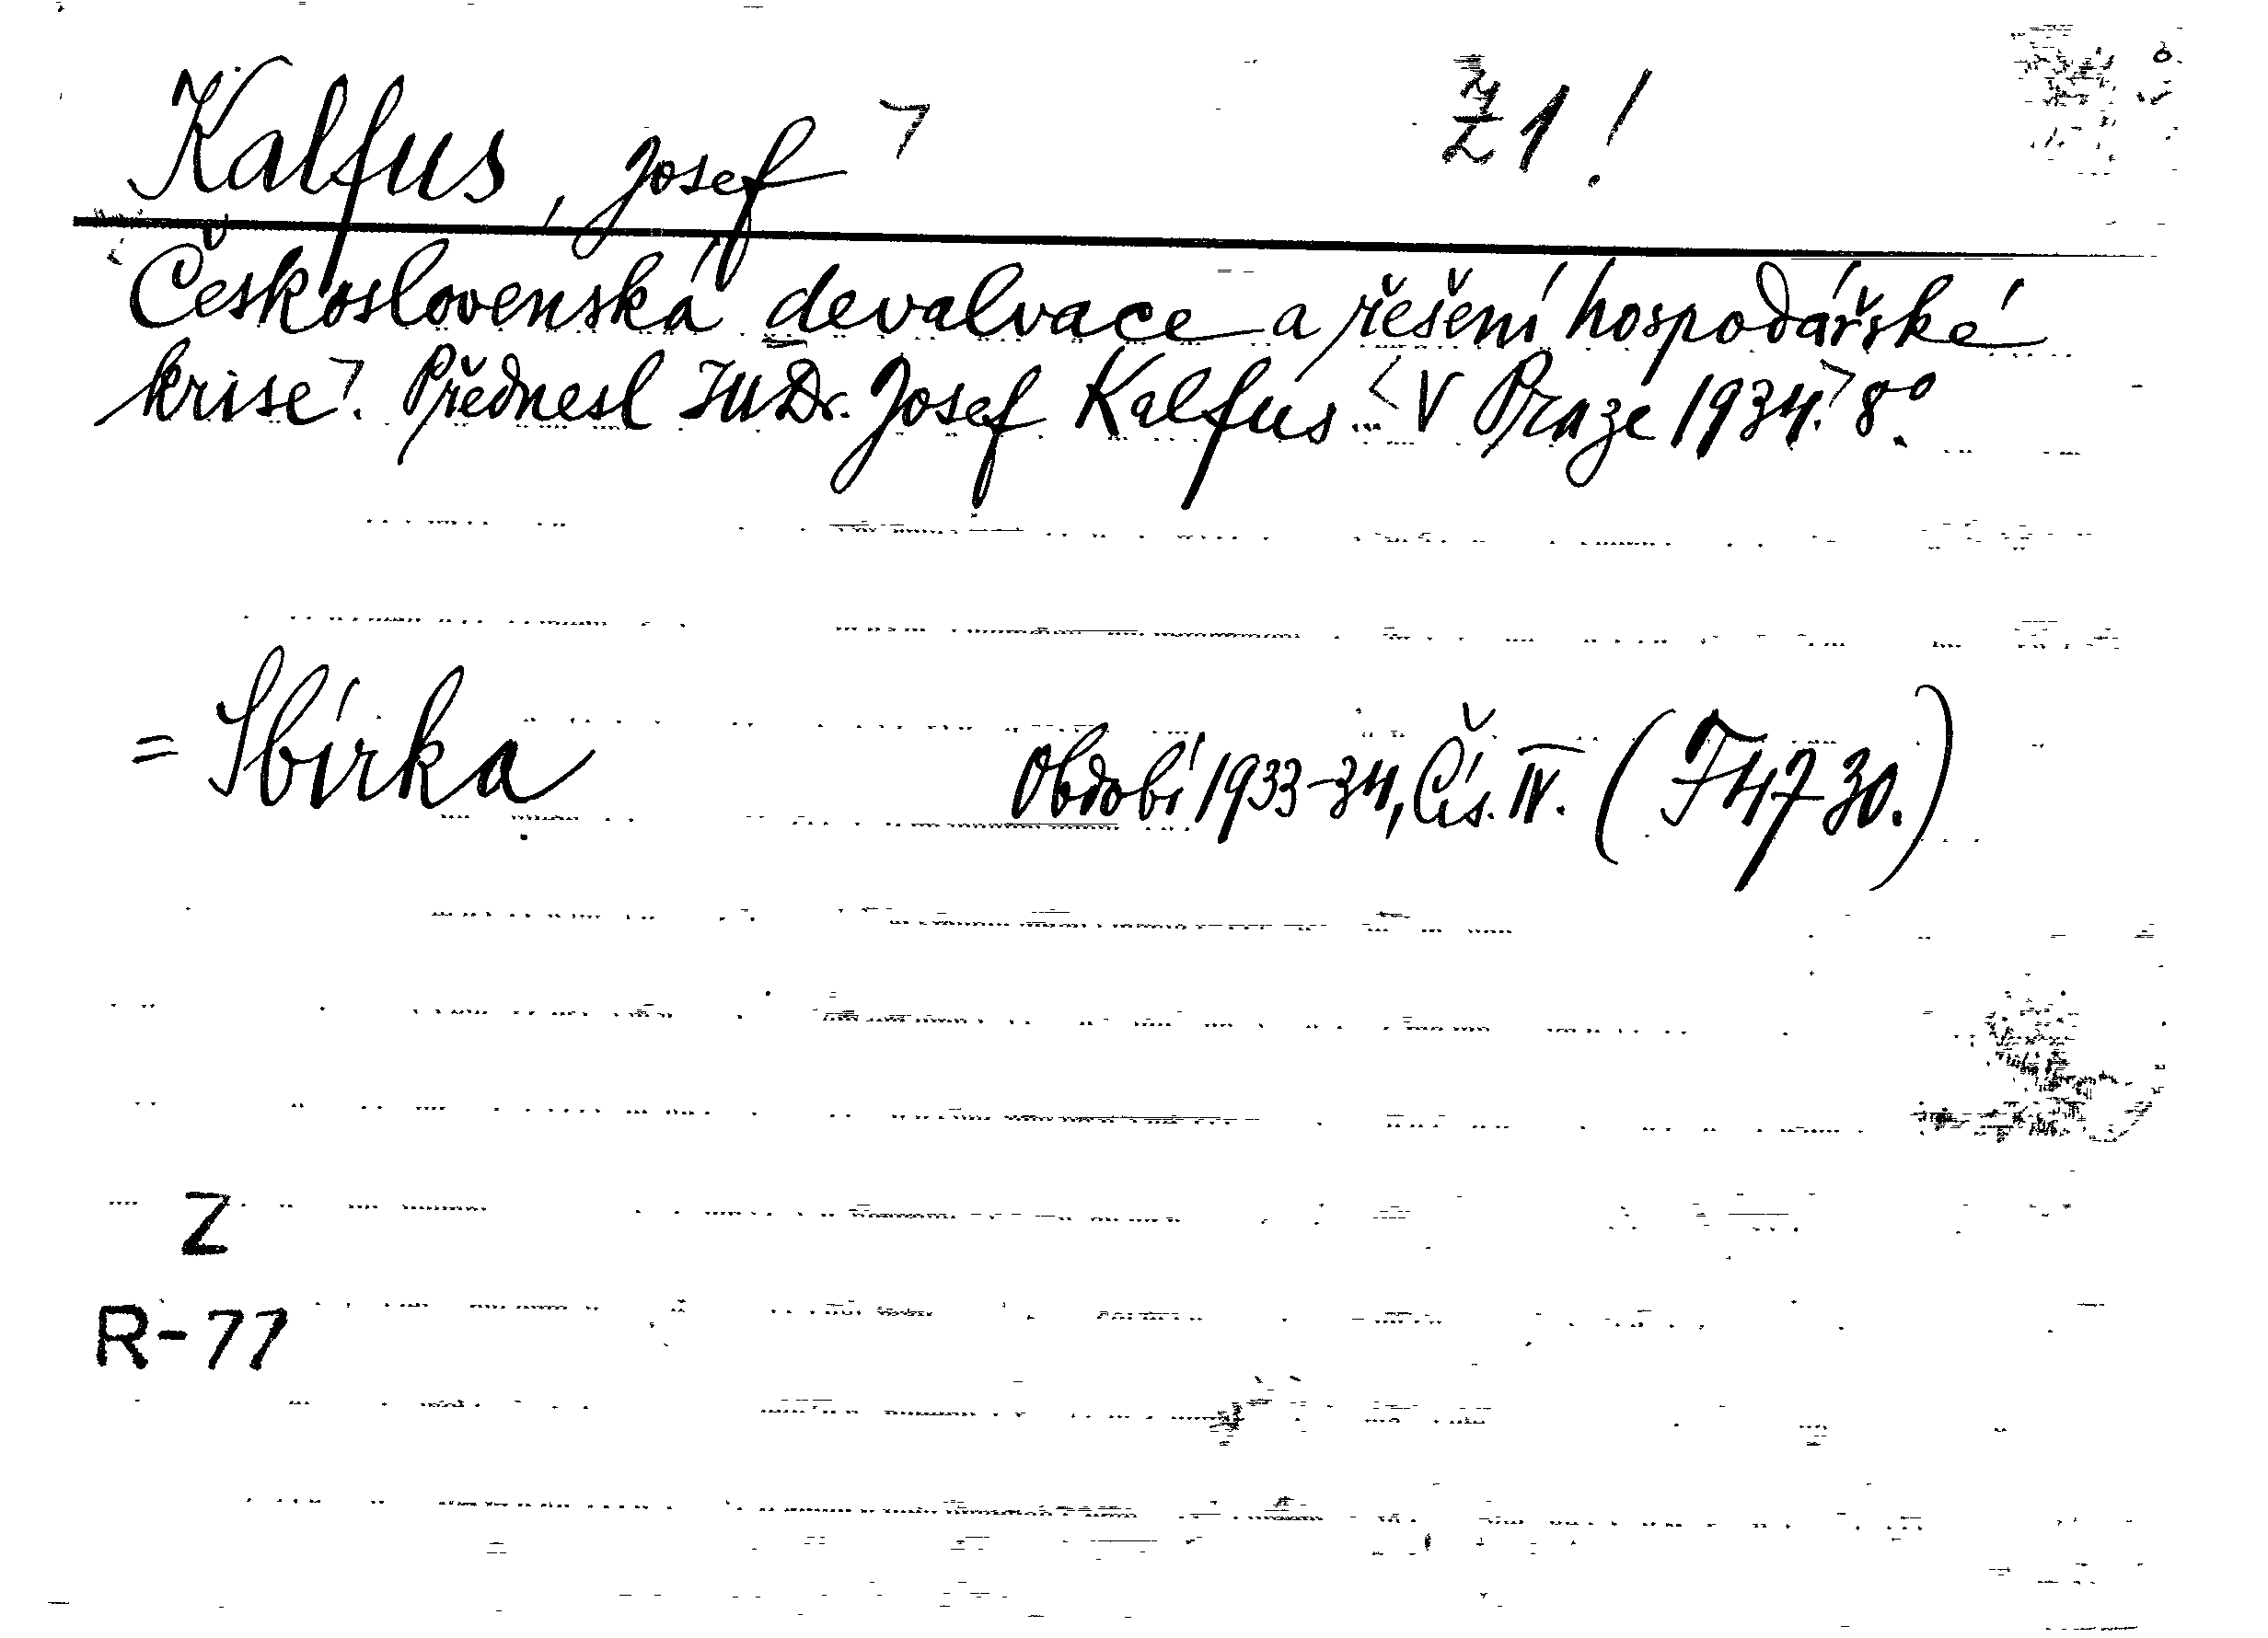 Kalfus, Josef ⁊ Z 1!
Československá devalvace a řešení hospodářské
krise⁊. Přednesl JUDr. Josef Kalfus ... < V Praze 1934.⁊ 8°.
= Sbírka Období 1933-34, Čís. IV. (J 4730.)
Z
R-77